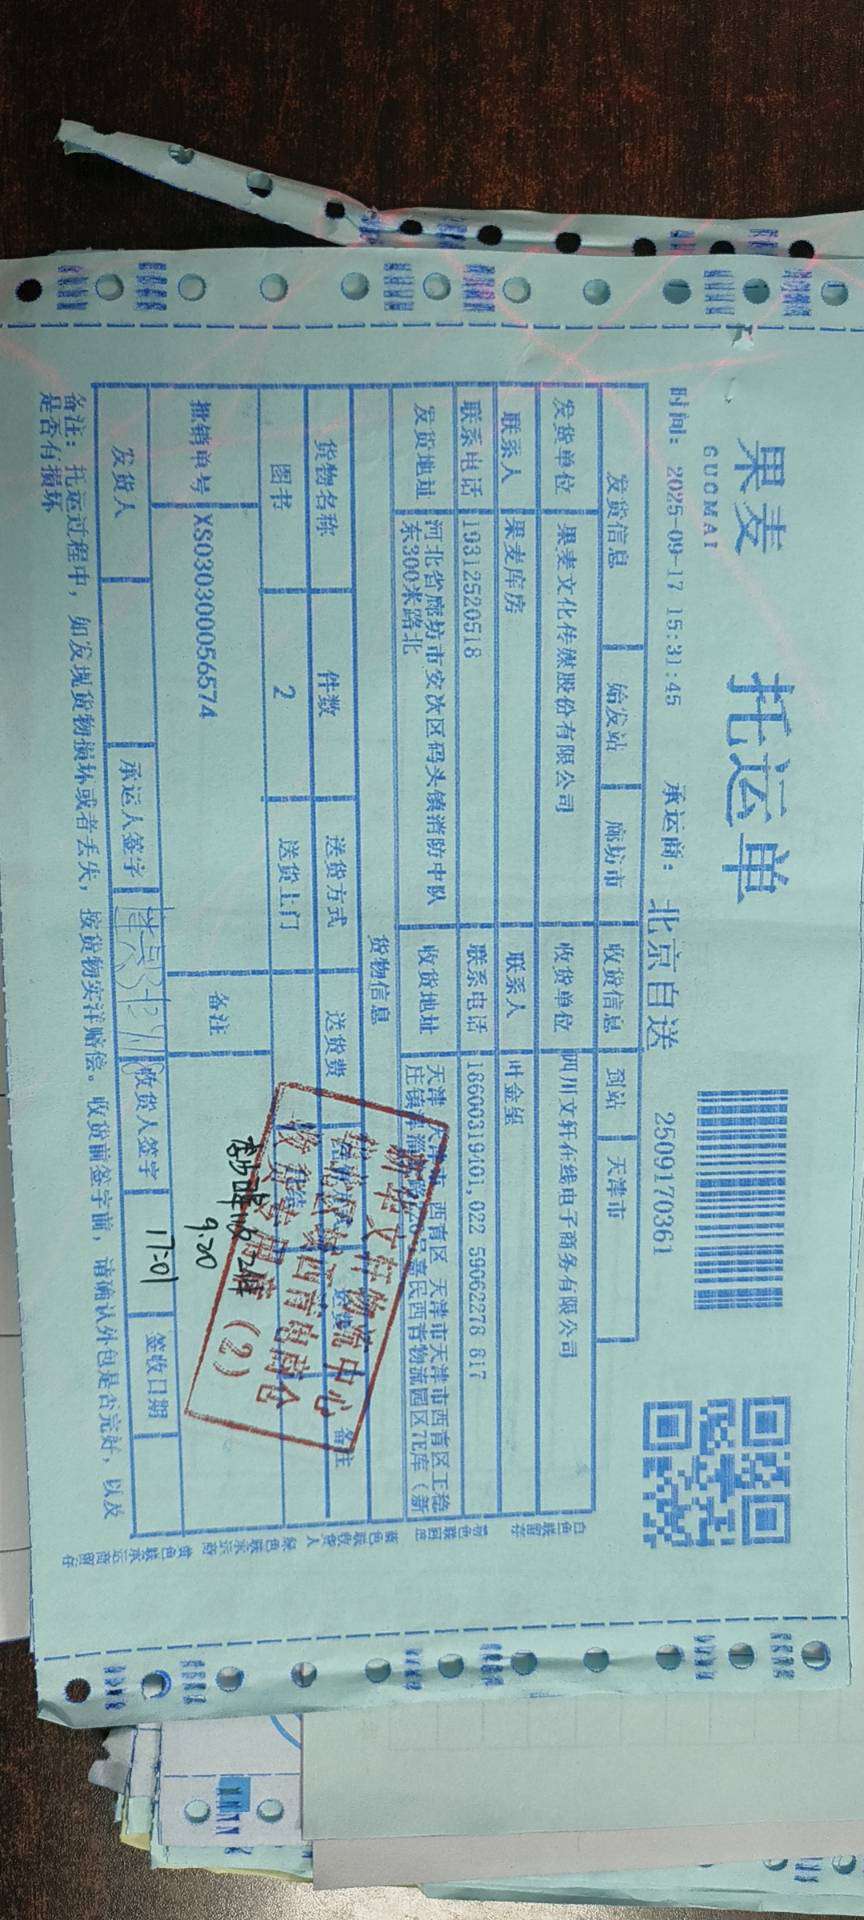 果麦
GUOMAI
托运单
时间: 2025-09-17 15:31:45 承运商: 北京自送 2509170361
发货信息 始发站 廊坊市 收货信息 到站 天津市
发货单位 果麦文化传媒股份有限公司 收货单位 四川文轩在线电子商务有限公司
联系人 果麦库房 联系人 叶金玺
联系电话 19312520518 联系电话 18600319101,022 59062278 817
发货地址 河北省廊坊市安次区码头镇消防中队东300米路北 收货地址 天津 西青区 天津市天津市西青区王稳庄镇 西青物流园区7E库（新
货物信息
货物名称 件数 送货方式 送货费 备注
图书 2 送货上门
批销单号 XS030300056574 备注
新华文轩物流中心
收货专用章（2）
9.20
发货人 承运人签字 收货人签字 17:01 签收日期
备注: 托运过程中，如发现货物损坏或者丢失，按货物实洋赔偿。收货前签字前，请确认外包是否完好，以及
是否有损坏
白色联留存